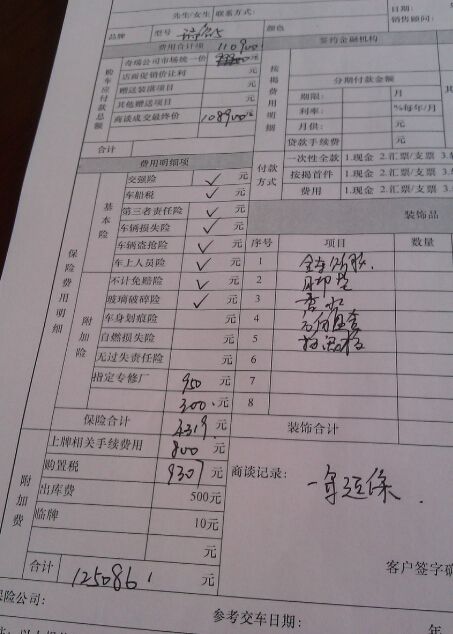 先生/女生 联系方式: 日期:
品牌 型号 颜色 销售顾问:
费用合计项 110900 签约金融机构
购车应付款总额
奇瑞公司市场统一价 元
店面促销价让利 元 按揭费用明细 分期付款金额
赠送装潢项目 期限: 月
其他赠送项目 利率: %每年/月
商谈成交最终价 108900元 月供: 元
贷款手续费
合计 付款方式 一次性全款 1.现金 2.汇票/支票 3.
费用明细项 按揭首件 1.现金 2.汇票/支票 3.
费用 1.现金 2.汇票/支票 3.
保险费用明细
基本险
交强险 ✓ 元
车船税 ✓ 元
第三者责任险 ✓ 元 装饰品
车辆损失险 ✓ 元
车辆盗抢险 ✓ 元 序号 项目 数量
车上人员险 ✓ 元 1
附加险
不计免赔险 ✓ 元 2
玻璃破碎险 ✓ 元 3 香水
车身划痕险 元 4
自燃损失险 元 5
无过失责任险 元 6
指定专修厂 950 元 7
300 元 8
保险合计 4319 元 装饰合计
附加费
上牌相关手续费用 800 元
购置税 9307 元 商谈记录:
出库费 500元
临牌 10元
元
合计 125086 元 客户签字确
保险公司: 参考交车日期: 年